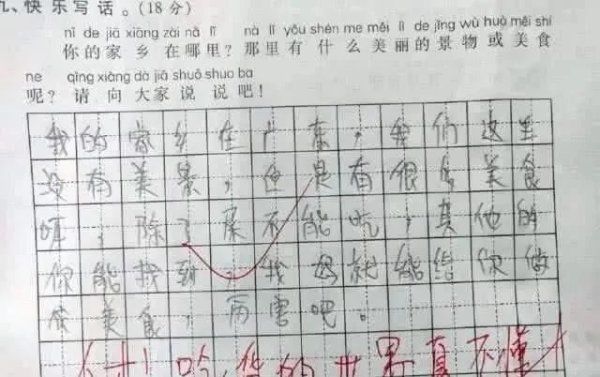 九、快乐写话。(18分)
nǐ de jiā xiāng zài nǎ lǐ nà lǐ yǒu shén me měi lì de jǐng wù huò měi shí
你的家乡在哪里?那里有什么美丽的景物或美食
ne qǐng xiàng dà jiā shuō shuo ba
呢?请向大家说说吧!
我的家乡在广东,我们这里
没有美景,但是有很多美食
,除了 不能吃,其他的
你能找到,我 就能给你做
成美食,厉害吧。
吃货的世界真不懂